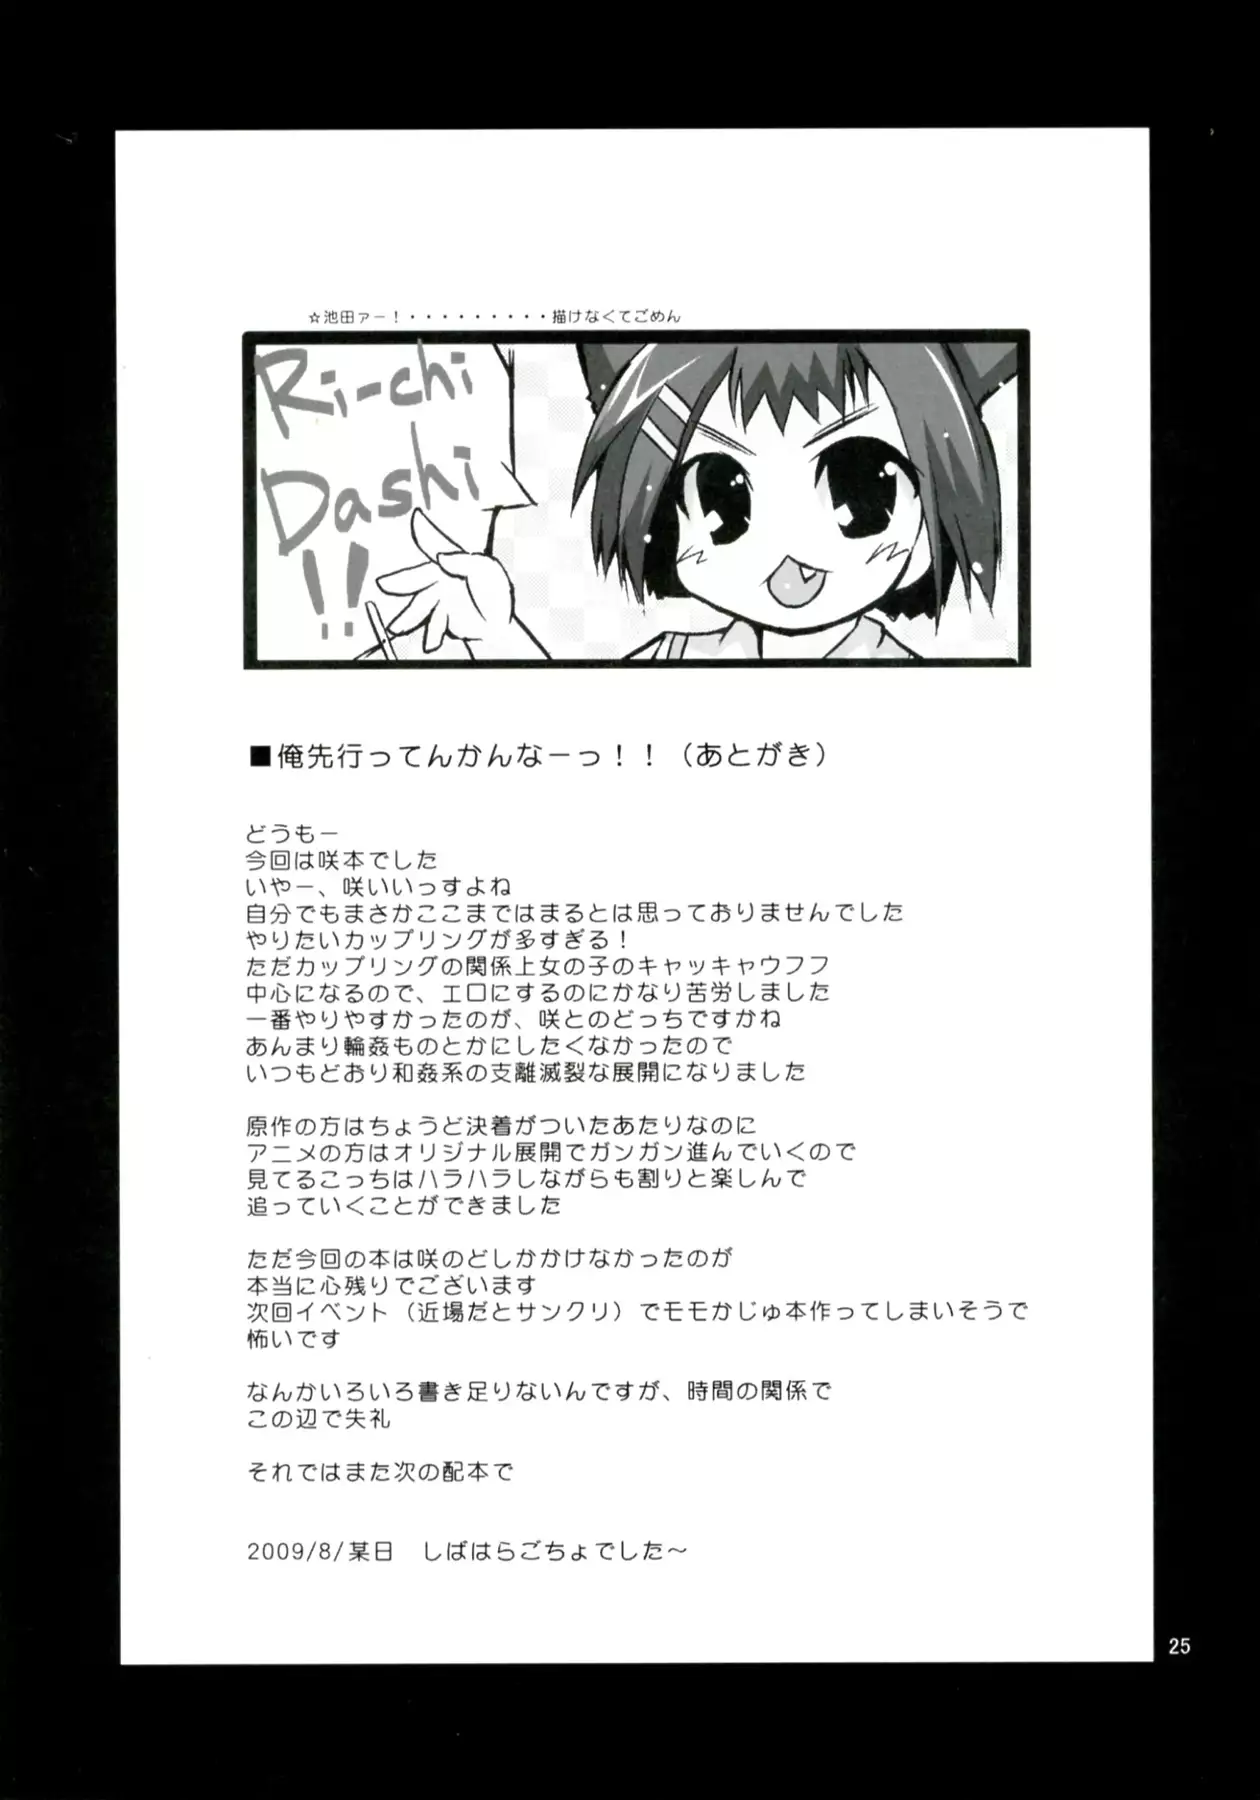 ☆池田ァー！・・・・・・・・・描けなくてごめん
Ri-chi
Dashi
!!
■俺先行ってんかんなーっ！！（あとがき）
どうもー
今回は咲本でした
いやー、咲いいっすよね
自分でもまさかここまではまるとは思っておりませんでした
やりたいカップリングが多すぎる！
ただカップリングの関係上女の子のキャッキャウフフ
中心になるので、エロにするのにかなり苦労しました
一番やりやすかったのが、咲とのどっちですかね
あんまり輪姦ものとかにしたくなかったので
いつもどおり和姦系の支離滅裂な展開になりました
原作の方はちょうど決着がついたあたりなのに
アニメの方はオリジナル展開でガンガン進んでいくので
見てるこっちはハラハラしながらも割りと楽しんで
追っていくことができました
ただ今回の本は咲のどしかかけなかったのが
本当に心残りでございます
次回イベント（近場だとサンクリ）でモモかじゅ本作ってしまいそうで
怖いです
なんかいろいろ書き足りないんですが、時間の関係で
この辺で失礼
それではまた次の配本で
2009/8/某日　しばはらごちょでした～
25